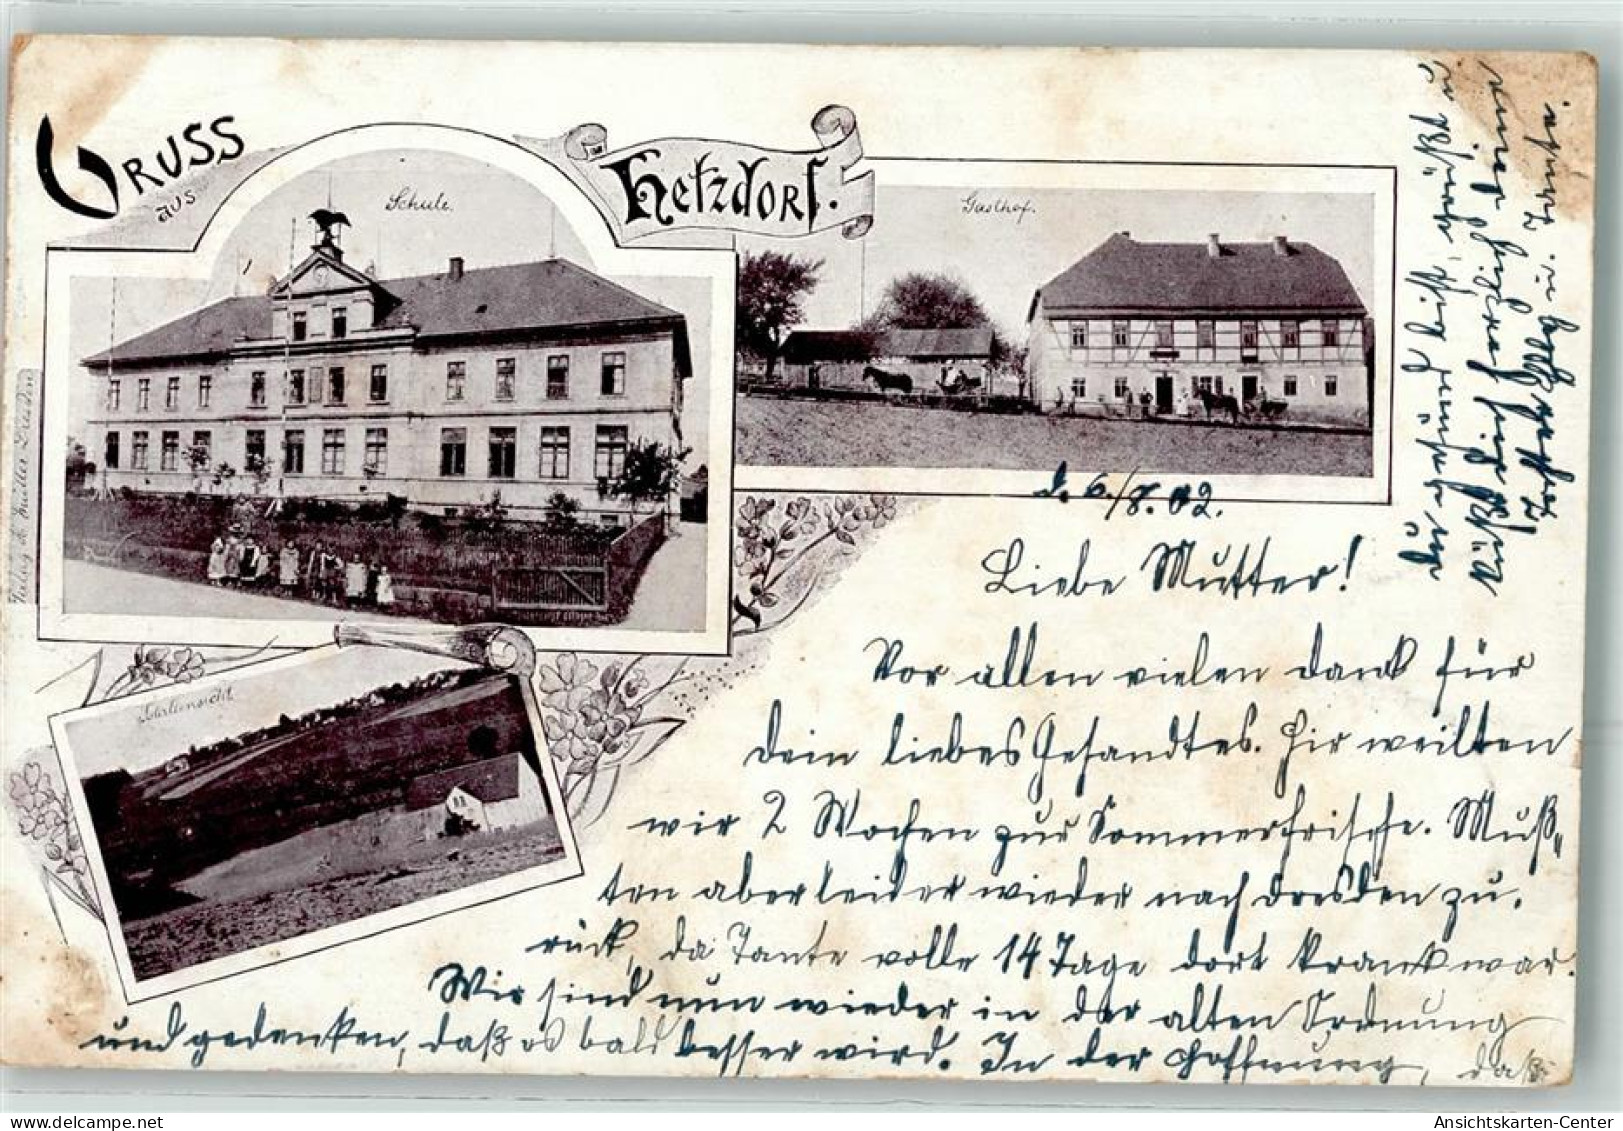 GRUSS
aus
Hetzdorf.
Schule.
Gasthof.
Totalansicht
Verlag R. Müller Dresden
d. 6./8. 02.
Liebe Mutter!
Vor allen vielen dank für
dein liebes Gesandtes. Hir weilten
wir 2 Wochen zur Sommerfrische. Muß-
ten aber leider wieder nach Dresden zu-
rück, da Tante volle 14 Tage dort krank war.
Wir sind nun wieder in der alten Ordnung
und gedenken, daß es bald besser wird. In der Hoffnung, daß
Ansichtskarten-Center